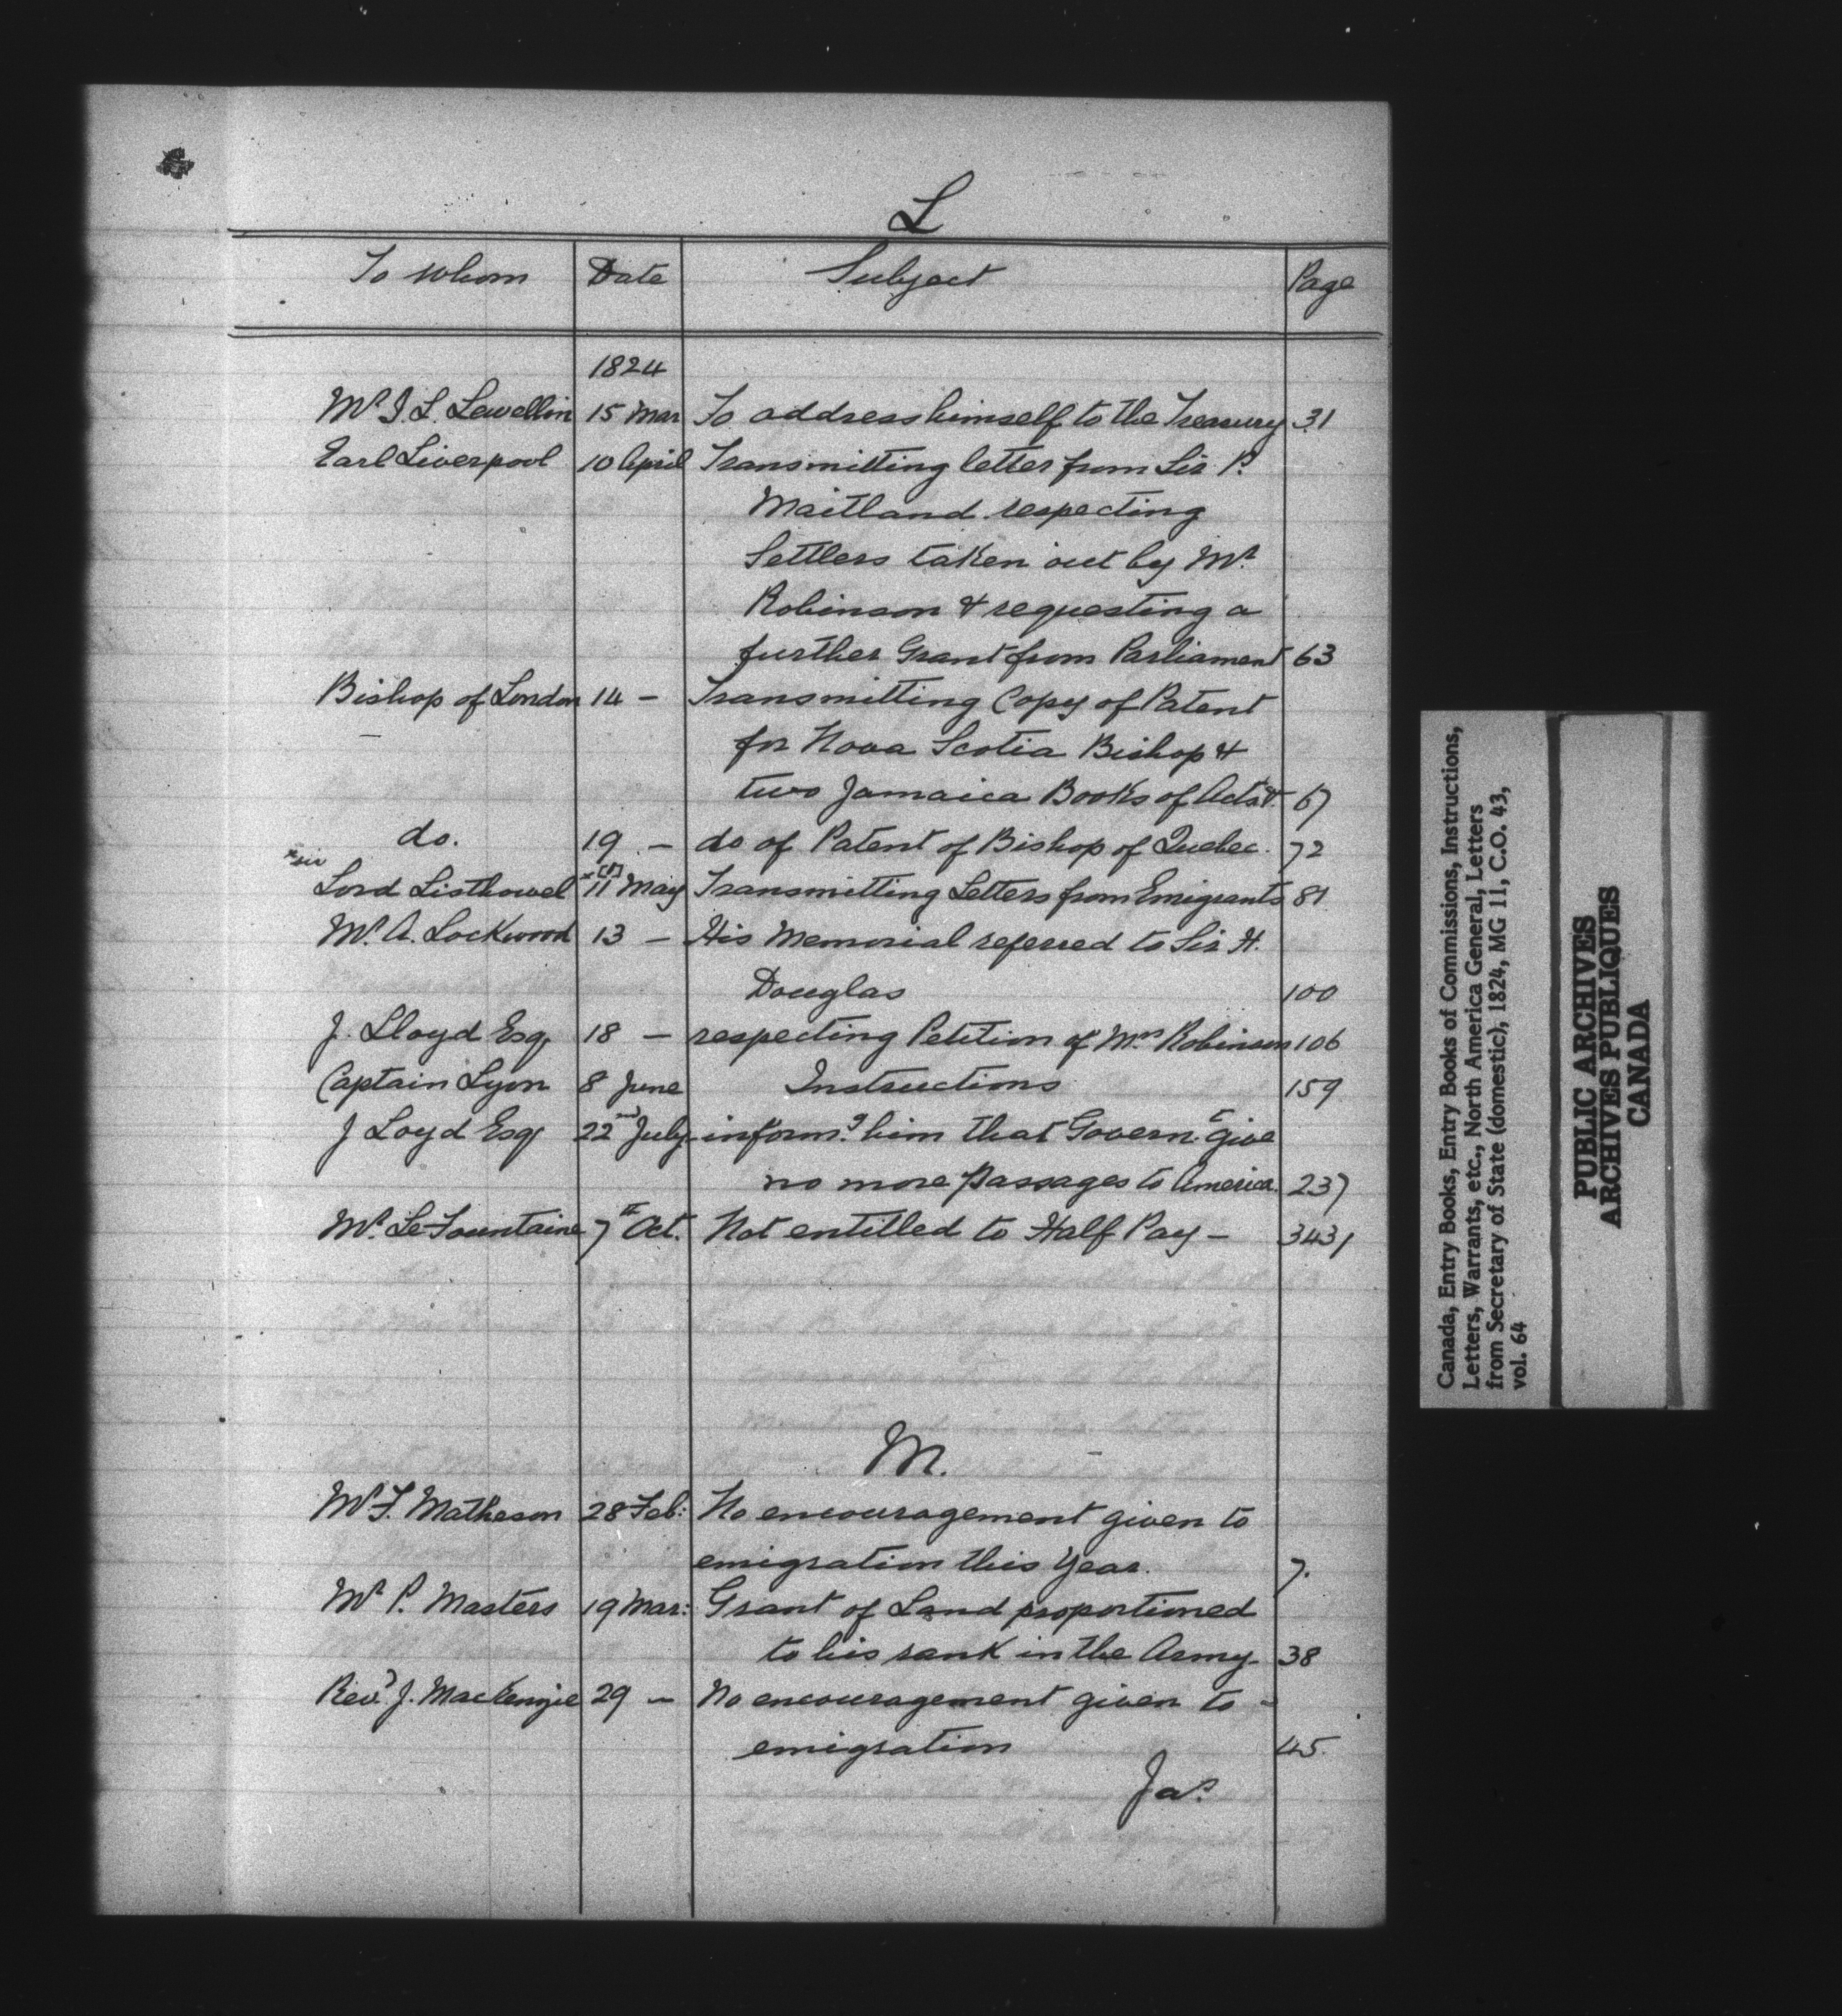 L
To whom Date Subject Page
1824
Mr. J. L. Lewellin 15 Mar To address himself to the Treasury 31
Earl Liverpool 10 April Transmitting letter from Sir P.
Maitland respecting
Settlers taken out by Mr.
Robinson & requesting a
further Grant from Parliament 63
Bishop of London 14 — Transmitting Copy of Patent
for Nova Scotia Bishop &
two Jamaica Books of Acts &. 67
do. 19 — do of Patent of Bishop of Quebec. 72
*sic
Lord Listhowel *11 May Transmitting Letters from Emigrants 81
Mr. A. Lockwood 13 — His Memorial referred to Sir H.
Douglas 100
J. Lloyd Esq. 18 — respecting Petition of Mrs. Robinson 106
Captain Lyon 8 June Instructions 159
J Loyd Esq. 22nd July informg. him that Governt. give
no more Passages to America. 237
Mr. Le Fountaine 7th Oct. Not entitled to Half Pay — 343
M.
Mr. F. Matheson 28 Feb: No encouragement given to
emigration this Year. 7.
Mr P. Masters 19 Mar: Grant of Land proportioned
to his rank in the Army 38
Revd. J. MacKenzie 29 — No encouragement given to -
emigration 45.
Jas.
Canada, Entry Books, Entry Books of Commissions, Instructions,
Letters, Warrants, etc., North America General, Letters
from Secretary of State (domestic), 1824, MG 11, C.O. 43,
vol. 64
PUBLIC ARCHIVES
ARCHIVES PUBLIQUES
CANADA